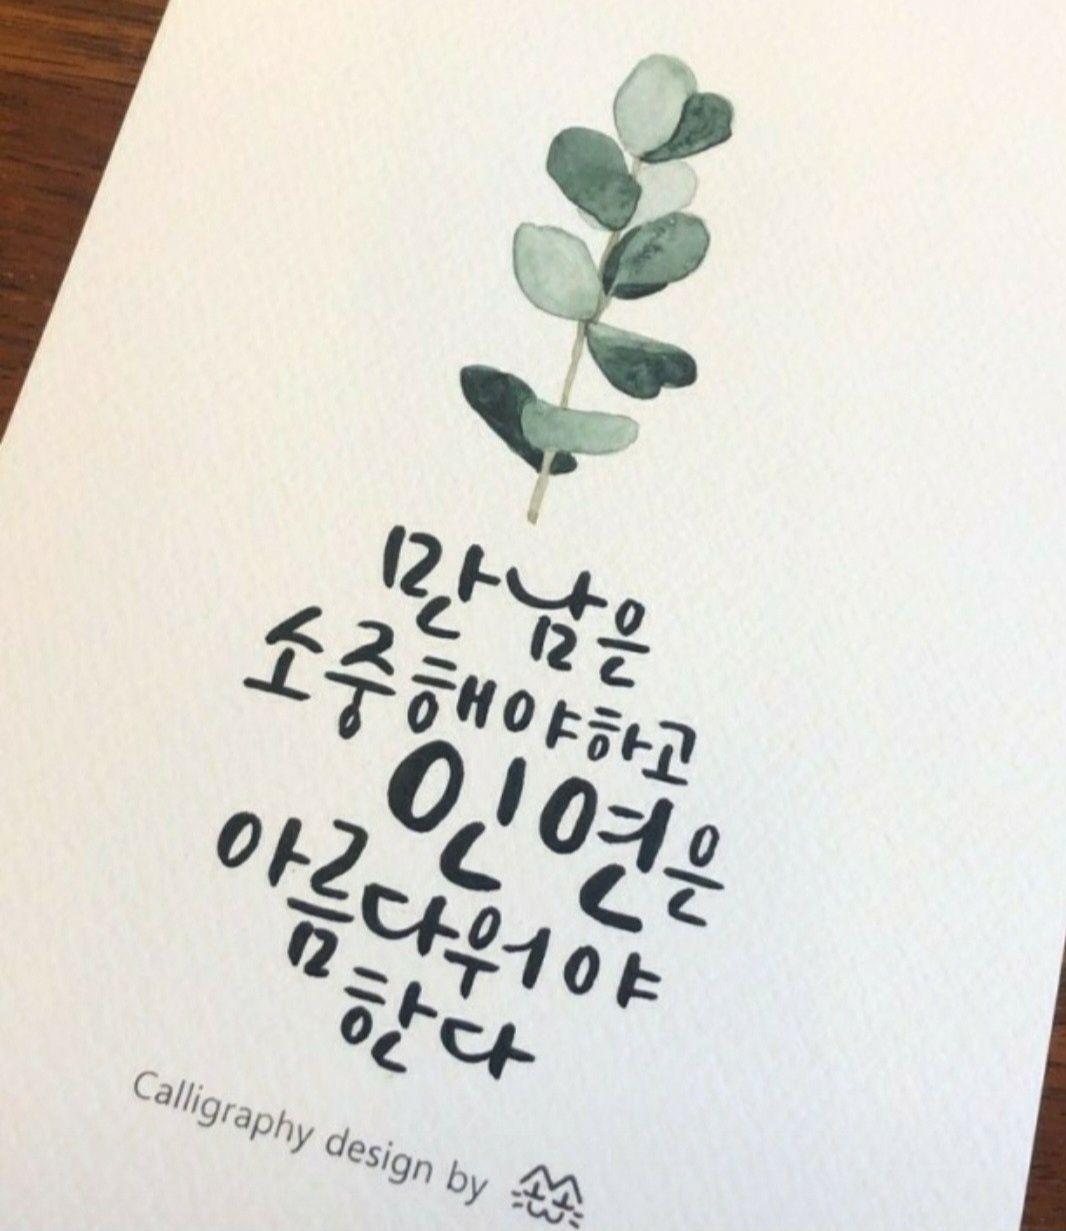 만남은
소중해야하고
인연은
아름다워야
한다
Calligraphy design by